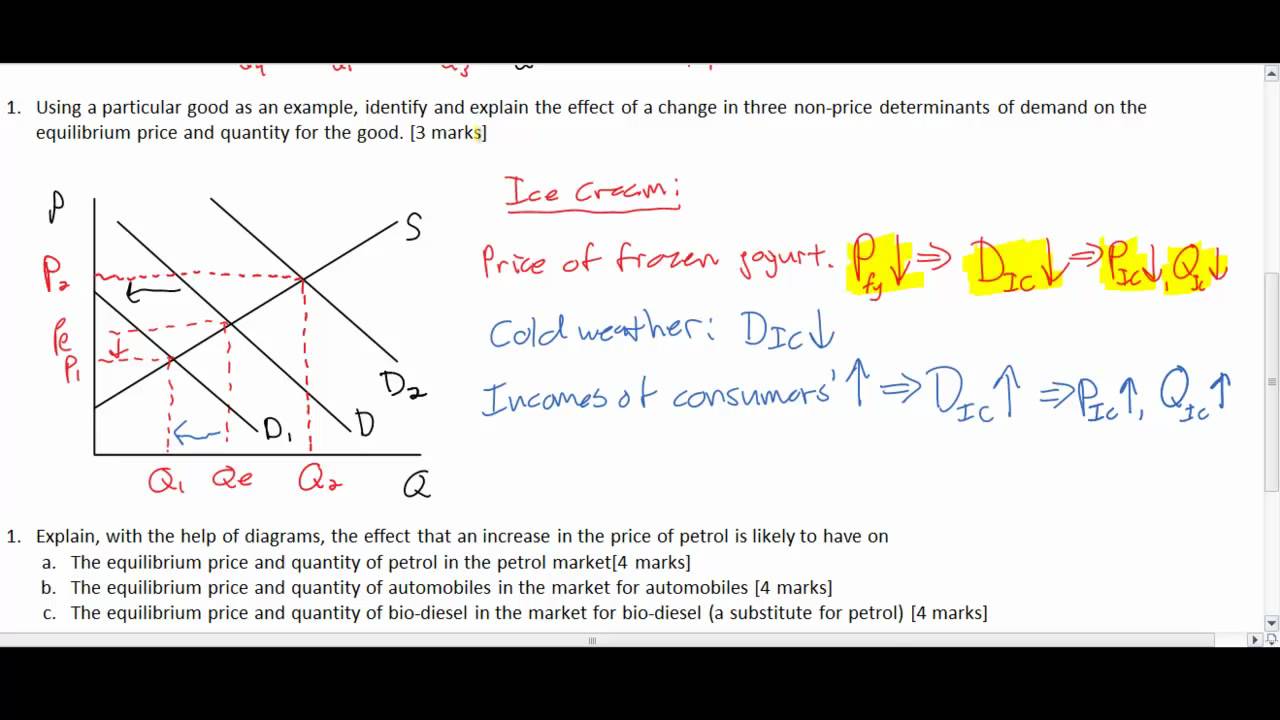 1. Using a particular good as an example, identify and explain the effect of a change in three non-price determinants of demand on the
equilibrium price and quantity for the good. [3 marks]
Ice Cream:
P
S
Price of frozen yogurt. Pfy↓ ⇒ DIC↓ ⇒ PIC↓, QIC↓
P2
Pe
Cold weather: DIC↓
P1
D2
Incomes of consumers' ↑ ⇒ DIC↑ ⇒ PIC↑, QIC↑
D1
D
Q1 Qe Q2 Q
1. Explain, with the help of diagrams, the effect that an increase in the price of petrol is likely to have on
a. The equilibrium price and quantity of petrol in the petrol market[4 marks]
b. The equilibrium price and quantity of automobiles in the market for automobiles [4 marks]
c. The equilibrium price and quantity of bio-diesel in the market for bio-diesel (a substitute for petrol) [4 marks]